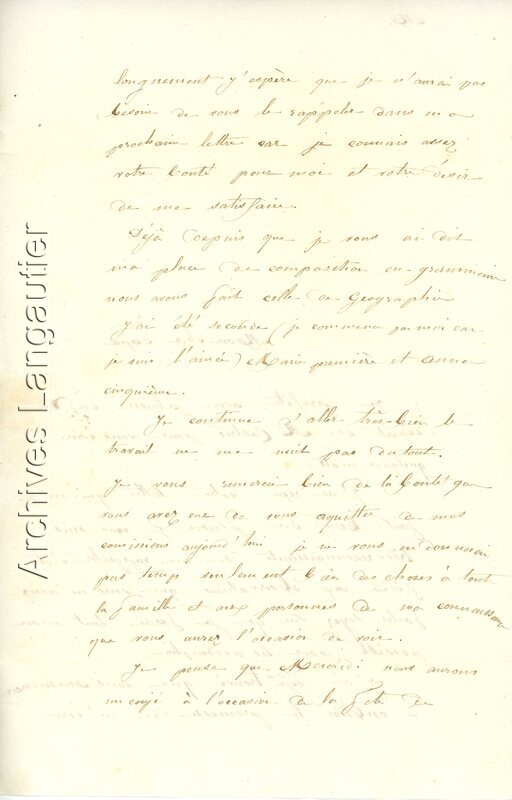 longuement j'espère que je n'aurai pas
besoin de vous le rappeler dans ma
prochaine lettre car je connais assez
votre bonté pour moi et votre désir
de me satisfaire.
Déjà depuis que je vous ai dit
ma place de composition en grammaire
nous avons fait celle de Géographie
J'ai été seconde (je commence par moi car
je suis l'ainée) Marie première et Anna
cinquième.
Je continue d'aller très-bien le
travail ne me nuit pas du tout.
Je vous remercie bien de la bonté que
vous avez eue de vous aquitter de mes
comissions aujourd'hui je ne vous en donnerai
pas temps seulement bien des choses à tout
la famille et aux personnes de ma connaissance
que vous aurez l'occasion de voir.
Je pense que Mercredi nous aurons
un congé à l'occasion de la fête de
Archives Langautier